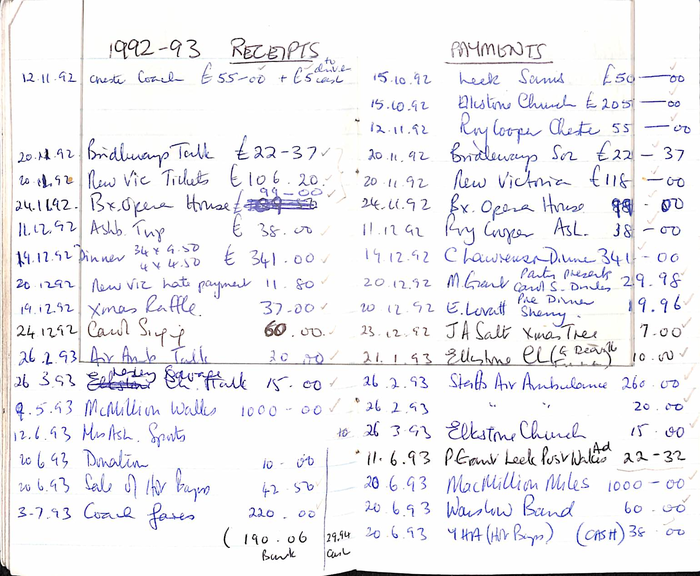 1992-93 RECEIPTS
12.11.92 Cheste Coach £55-00 + £5 to driver cash
20.11.92 Bridleways Talk £22-37
20.11.92 New Vic Tickets £106.20
24.11.92 Bx. Opera House £ 99-00
11.12.92 Ashb. Trip £ 38.00
19.12.92 Dinner 34 x 9.50 4 x 4.50 £ 341.00
20.12.92 New Vic late payment 11.80
19.12.92 Xmas Raffle. 37.00
24.12.92 Carol Singing 60.00
26.2.93 Air Amb Talk 20.00
26 3.93 Ch Talk 15.00
9.5.93 McMillion Walks 1000-00
12.6.93 Mrs Ash. Sports
20 6.93 Donation 10-00
20 6.93 Sale of Hot Bags 42.50
3-7.93 Coach fares 220.00
(190.06 Bank 29.94 cash
PAYMENTS
15.10.92 Leek Sams £50-00
15.10.92 Elkstone Church £205-00
12.11.92 Roy Cooper Cheste 55-00
20.11.92 Bridleways Soc £22-37
20.11.92 New Victoria £118-00
24.11.92 Bx. Opera House 99.00
11.12.92 Roy Cooper Ash. 38-00
19.12.92 C Lawrenson Dinner 341-00
20.12.92 M Grant Party presents Carol S. Drinks 29.98
20 12.92 E. Lovatt Pre Dinner Sherry. 19.96
23.12.92 J A Salt Xmas Tree 7.00
21.1.93 Elkstone Ch 10.00
26.2.93 Staffs Air Ambulance 260.00
26 2.93 " " 20.00
to 26 3.93 Elkstone Church 15.00
11.6.93 P Grant Leek Post Walks Ad 22-32
20.6.93 MacMillion Miles 1000-00
20.6.93 Warslow Band 60.00
20.6.93 YHA (Hot Bags) (CASH) 38.00